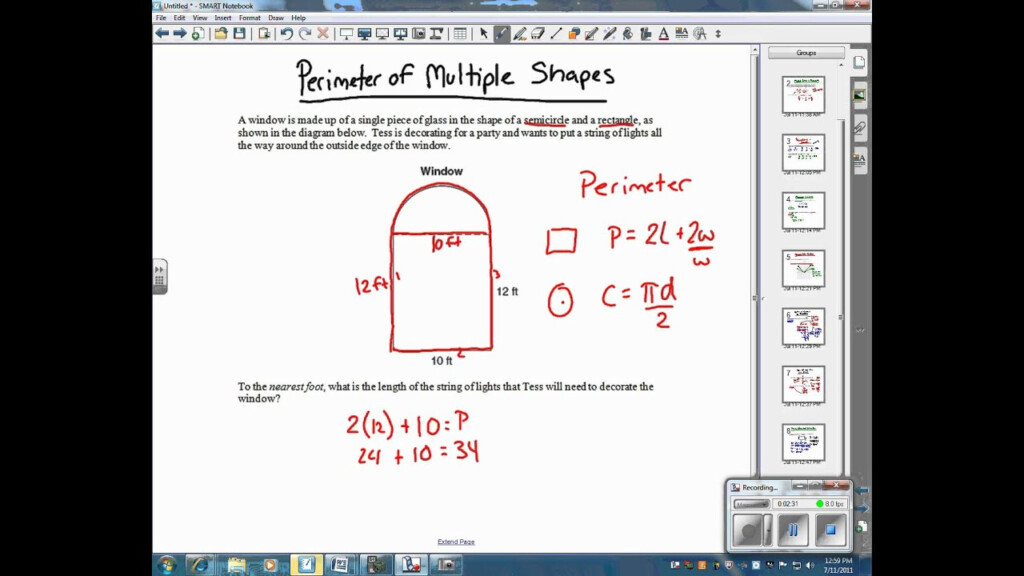 Untitled * - SMART Notebook
File Edit View Insert Format Draw Help
Groups
Perimeter of Multiple Shapes
A window is made up of a single piece of glass in the shape of a semicircle and a rectangle, as
shown in the diagram below. Tess is decorating for a party and wants to put a string of lights all
the way around the outside edge of the window.
Window
Perimeter
10 ft
P = 2l + 2w
w
12 ft 1
3
12 ft
C = πd
2
2
10 ft
To the nearest foot, what is the length of the string of lights that Tess will need to decorate the
window?
2(12) + 10 = P
24 + 10 = 34
Extend Page
2
3
4
5
6
7
8
Recording...
0:02:31
8.0 fps
12:59 PM
7/11/2011